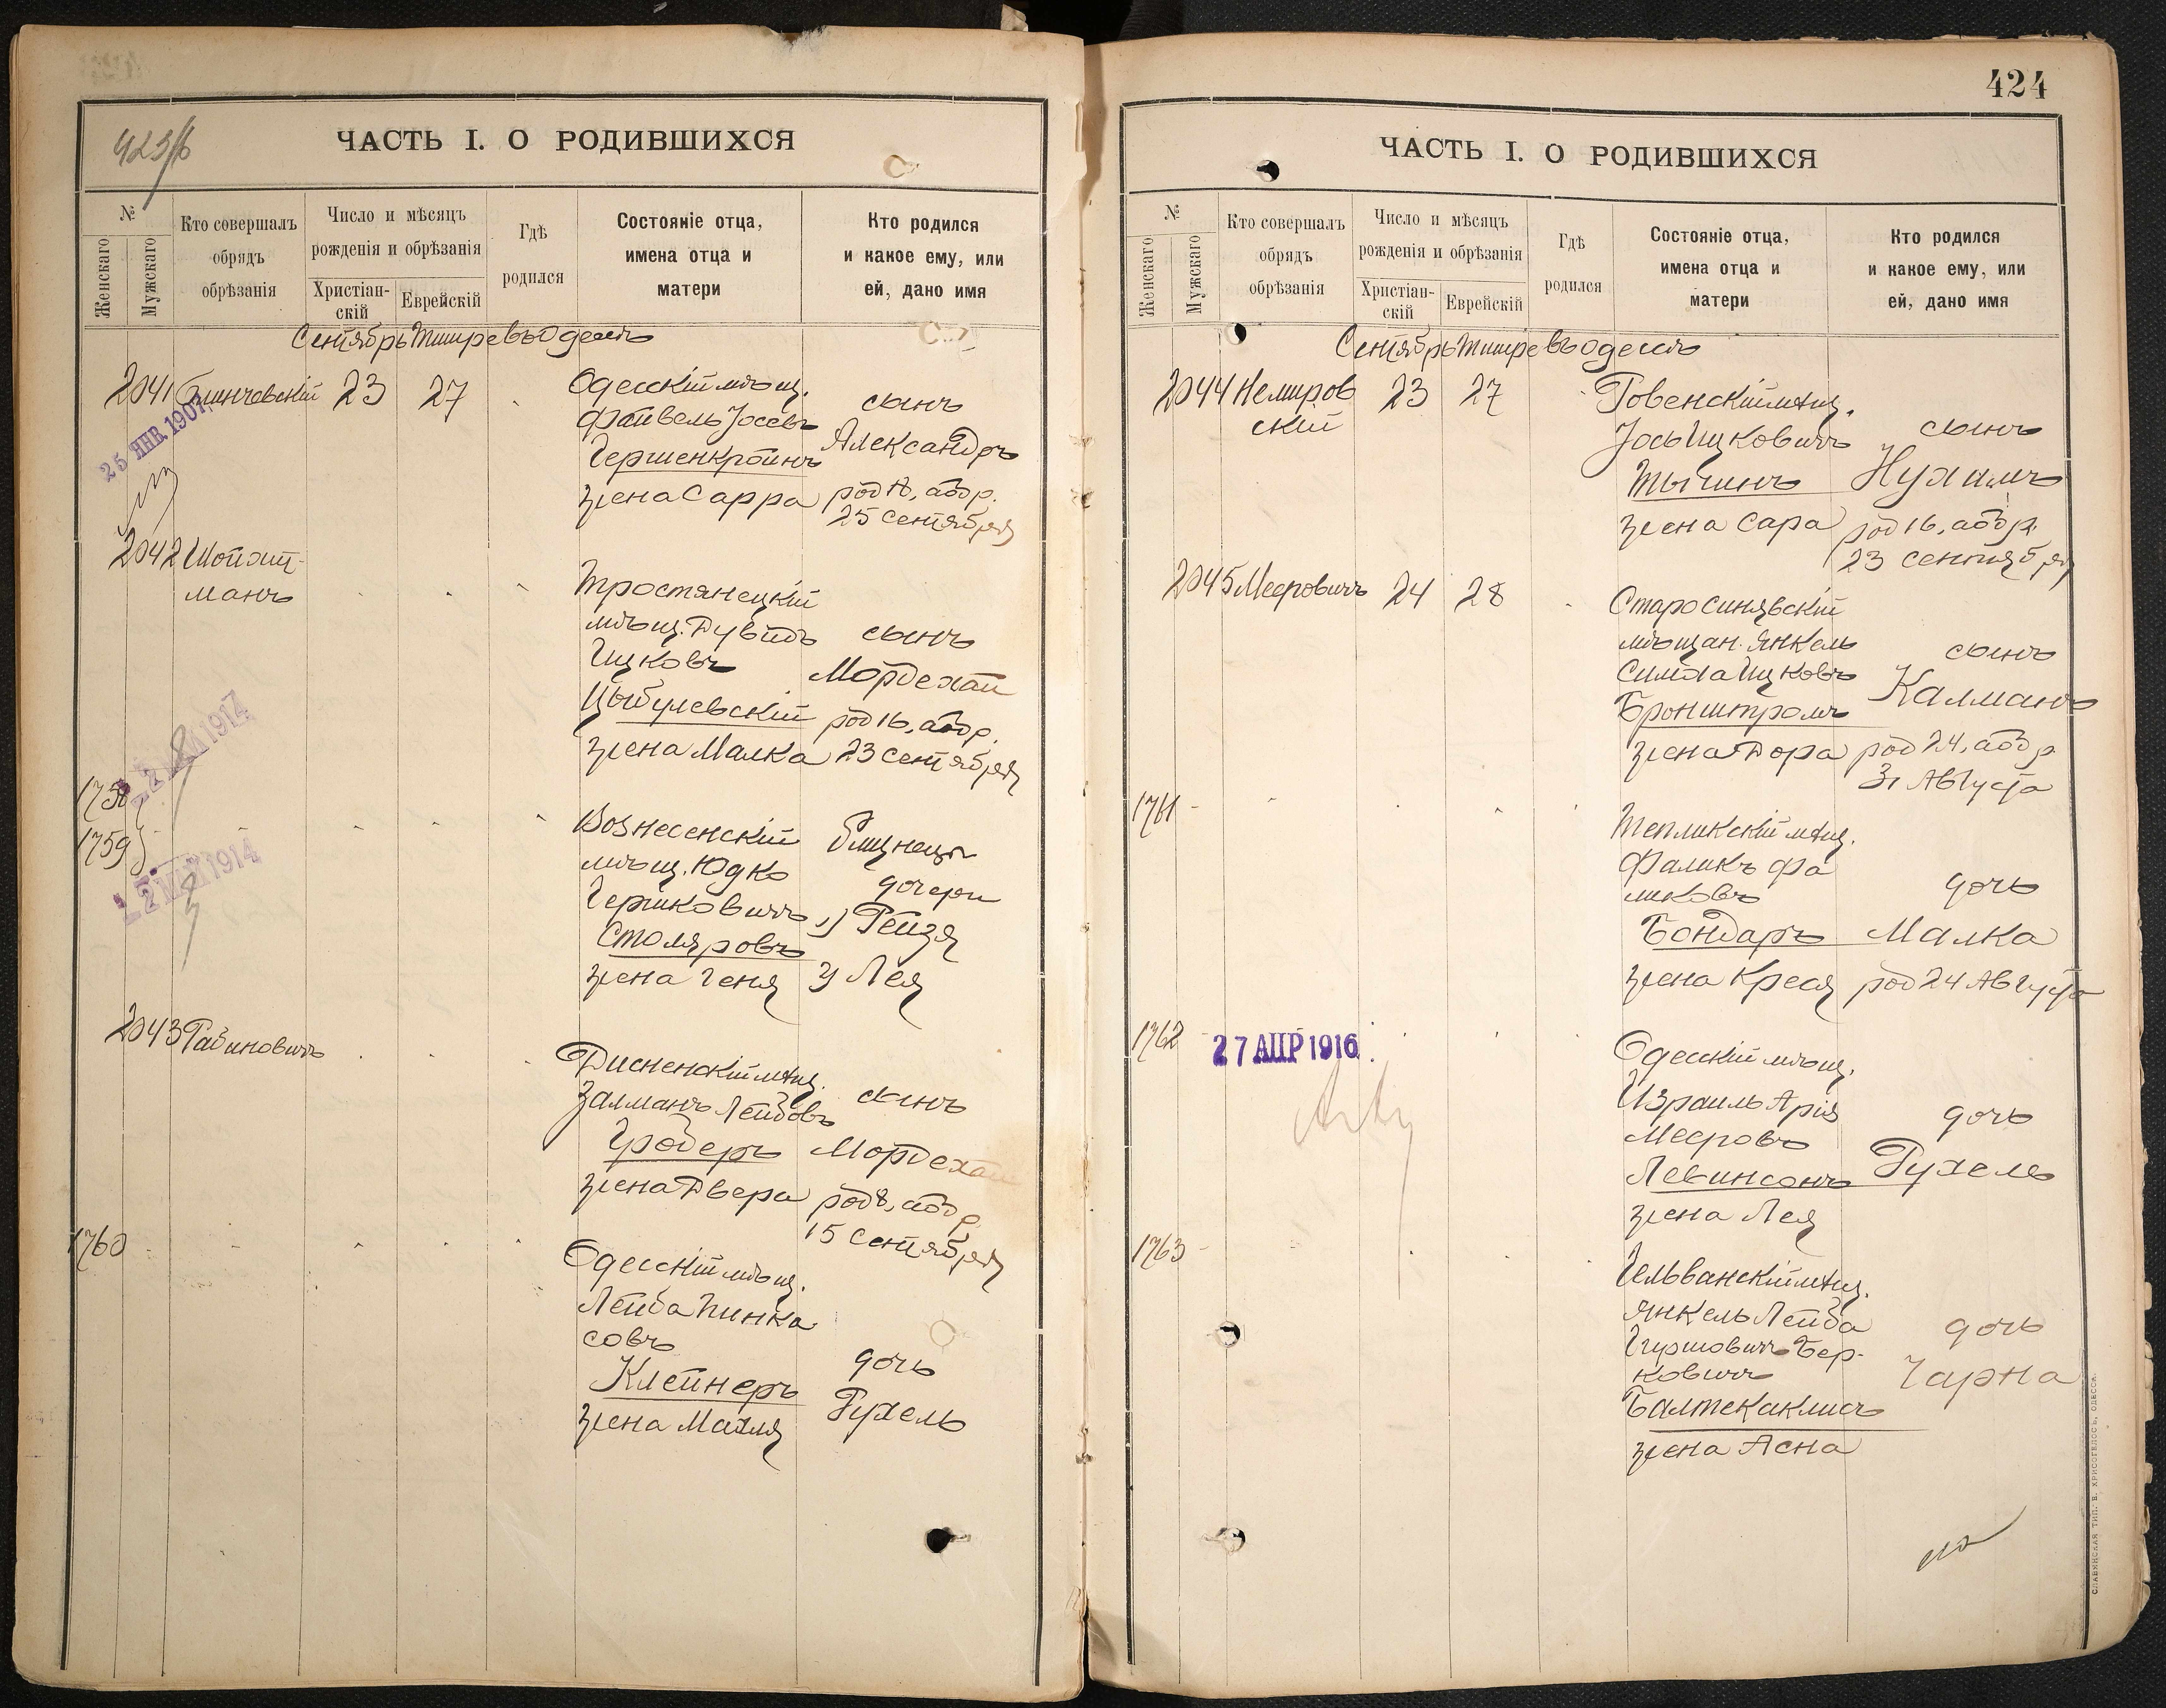 423/б
ЧАСТЬ I. О РОДИВШИХСЯ
№
Женскаго
Мужскаго
Кто совершалъ
обрядъ
обрѣзанія
Число и мѣсяцъ
рожденія и обрѣзанія
Христіан-
скій
Еврейскій
Гдѣ
родился
Состояніе отца,
имена отца и
матери
Кто родился
и какое ему, или
ей, дано имя
Сентябрь Тишре въ Одессѣ
2041
23
27
25 ЯНВ. 1907
Одесскій мѣщ.
Файвель Іосевъ
Гершенкройнъ
жена Сарра
сынъ
Александръ
род 18, абор.
25 сентября
2042 Шойхит-
манъ
Тростянецкій
мѣщ. Дувидъ
Ицковъ
Цыбулевскій
жена Малка
сынъ
Мордехай
род 16, абор.
23 сентября
1914
1758
1759
1914
Вознесенскій
мѣщ. Юдко
Гершковичъ
Столяровъ
жена Геня
близнецы
дочери
1) Рейзя
2) Лея
2043 Рабиновичъ
Дисненскій мѣщ.
Залманъ Лейбовъ
Гродеръ
жена Двера
сынъ
Мордехай
род 8, абор.
15 сентября
1760
Одесскій мѣщ.
Лейба Пинка
совъ
Клейнеръ
жена Махля
дочь
Рухель
424
ЧАСТЬ I. О РОДИВШИХСЯ
№
Женскаго
Мужскаго
Кто совершалъ
обрядъ
обрѣзанія
Число и мѣсяцъ
рожденія и обрѣзанія
Христіан-
скій
Еврейскій
Гдѣ
родился
Состояніе отца,
имена отца и
матери
Кто родился
и какое ему, или
ей, дано имя
Сентябрь Тишре въ Одессѣ
2044 Немиров
скій
23
27
Ровенскій мѣщ.
Іось Ицковичъ
жена Сара
сынъ
Нухимъ
род 16, абор.
23 сентября
2045 Мееровичъ
24
28
Старосинявскій
мѣщан. Янкель
Симха Ицковъ
Бронштромъ
жена Дора
сынъ
Калманъ
род 24, абор
31 Августа
1761
Тепликскій мѣщ.
Фаликъ Фа
ликовъ
Бондарь
жена Крейя
дочь
Малка
род 24 Августа
1762
27 АПР 1916
Одесскій мѣщ.
Израиль Арія
Мееровъ
Левинсонъ
жена Лея
дочь
Рухель
1763
Гельванскій мѣщ.
Янкель Лейба
Гиршовичъ Бер-
ковичъ
Балтекаклисъ
жена Асна
дочь
Чарна
СЛАВЯНСКАЯ ТИП. В. ХРИСОГЕЛОСЪ, ОДЕССА.